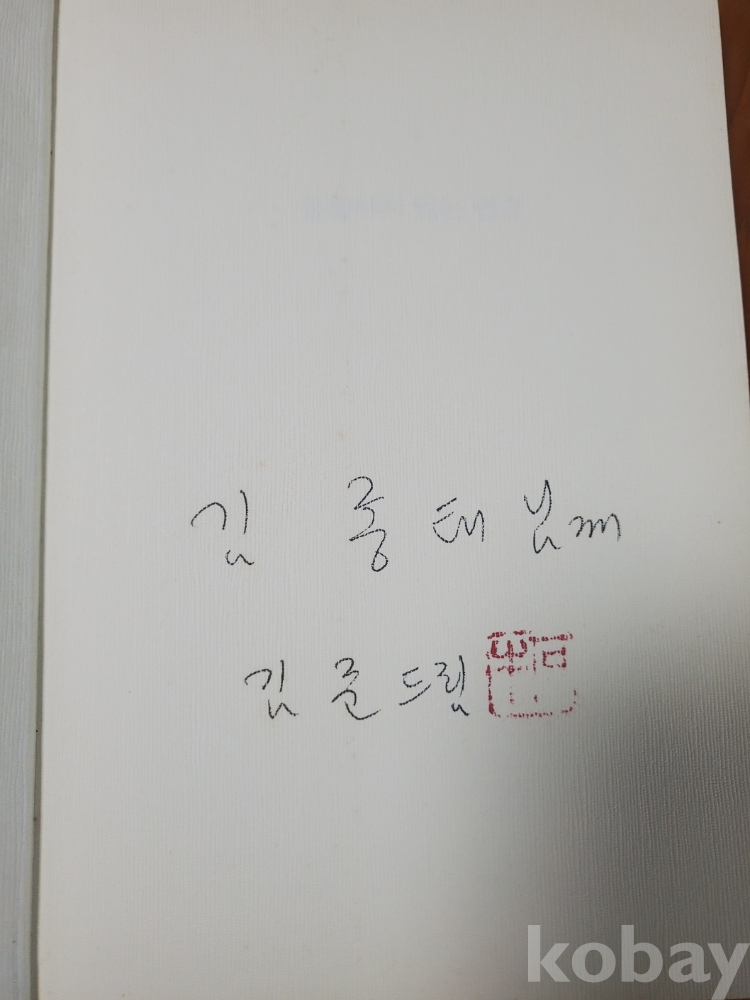 김종태님께
김준드림
kobay